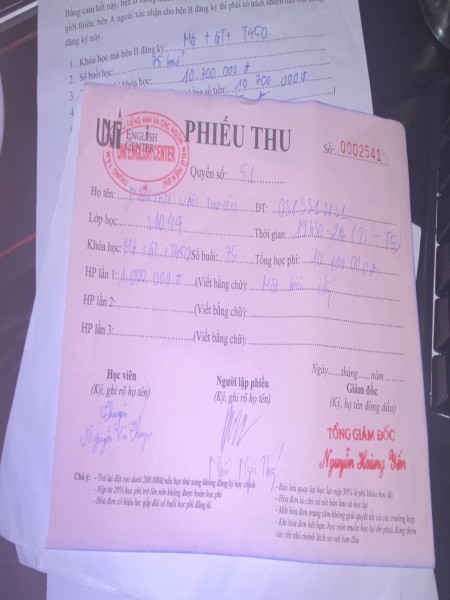 Bằng cam kết này, bên B
giới thiệu, bên A ngoài xác nhận cho bên B đăng ký thì phải có trách nhiệm
đăng ký này.
1. Khóa học mà bên B đăng ký: MG + GT + T450
2. Số buổi học: 75 buổi
khóa học: 10 700 000 đ
số tiền: 10 700 000đ
UNI ENGLISH CENTER
UNI ENGLISH CENTER
PHIẾU THU
Số: 0002541
Quyển số: 51
Họ tên: Nguyễn Văn ĐT:
Lớp học: Thời gian: 19h30 - 21h (T3 - T5)
Khóa học: MG + GT + T450 Số buổi: 75 Tổng học phí: 10 700 000đ
HP lần 1: 1.000.000đ (Viết bằng chữ): Một triệu
HP lần 2: (Viết bằng chữ):
HP lần 3: (Viết bằng chữ):
Ngày......tháng......năm......
Học viên Người lập phiếu Giám đốc
(Ký, ghi rõ họ tên) (Ký, ghi rõ họ tên) (Ký, họ tên đóng dấu)
TỔNG GIÁM ĐỐC
Nguyễn Hoàng Yến
Nguyễn Văn
Chú ý: - Trả lại đặt cọc dưới 200.000đ nếu học thử xong không đăng ký học chính
- Nộp từ 20% học phí trở lên nếu không được hoàn học phí
- Hóa đơn có hiệu lực gấp đôi số buổi học phí đăng kí
- Bảo lưu quay lại học lại nộp 30% lệ phí khóa học đó.
- Hóa đơn là căn cứ xét bảo lưu và học lại
- Mất hóa đơn trung tâm không giải quyết tất cả các trường hợp
- Khi hóa đơn hết hạn, học viên muốn học lại thì phải đóng thêm
các chi phí chênh lệch so với ban đầu